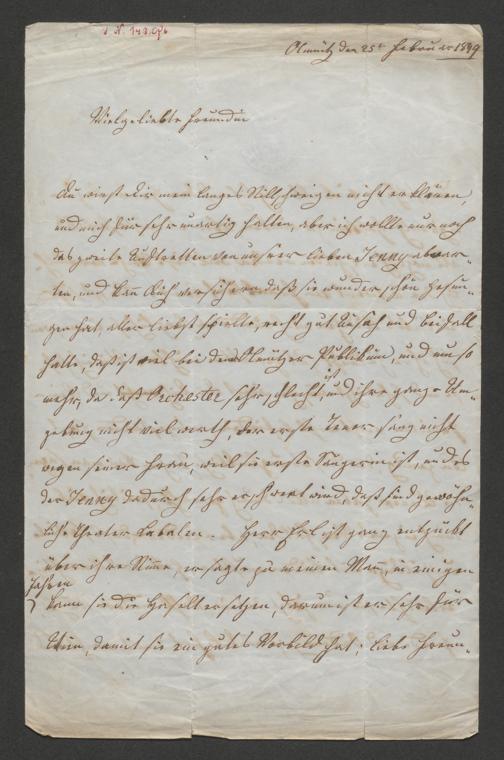 I. N. 148.076
Olmütz den 25t Februar 1849
Vielgeliebte Freundin
Du wirst Dir mein langes Stillschweigen nicht erklären,
und mich für sehr unartig halten, aber ich wollte nur noch
das zweite Auftretten von unsrer lieben Jenny abwar-
ten, und kann Dich versichern daß sie wunderschön gesun-
gen hat, aller liebst spielte, recht gut aussah und Beifall
hatte, daß ist viel bei dem Olmützer Publikum, und um so
mehr, da daß Orchester sehr schlecht ist, und ihre ganze Um-
gebung nicht viel werth, der erste Tenor sang nicht
wegen seiner Frau, weil sie erste Sängerin ist, und es
der Jenny dadurch sehr erschwert wird, daß sind gewöhn-
liche Theater Cabalen. Herr Erl ist ganz entzückt
über ihre Stimme, er sagte zu meinem Mann, in einigen
Jahren
kann sie die Haselt ersetzen, darum ist er sehr für
Wien, damit sie ein gutes Vorbild hat; liebe Freun-